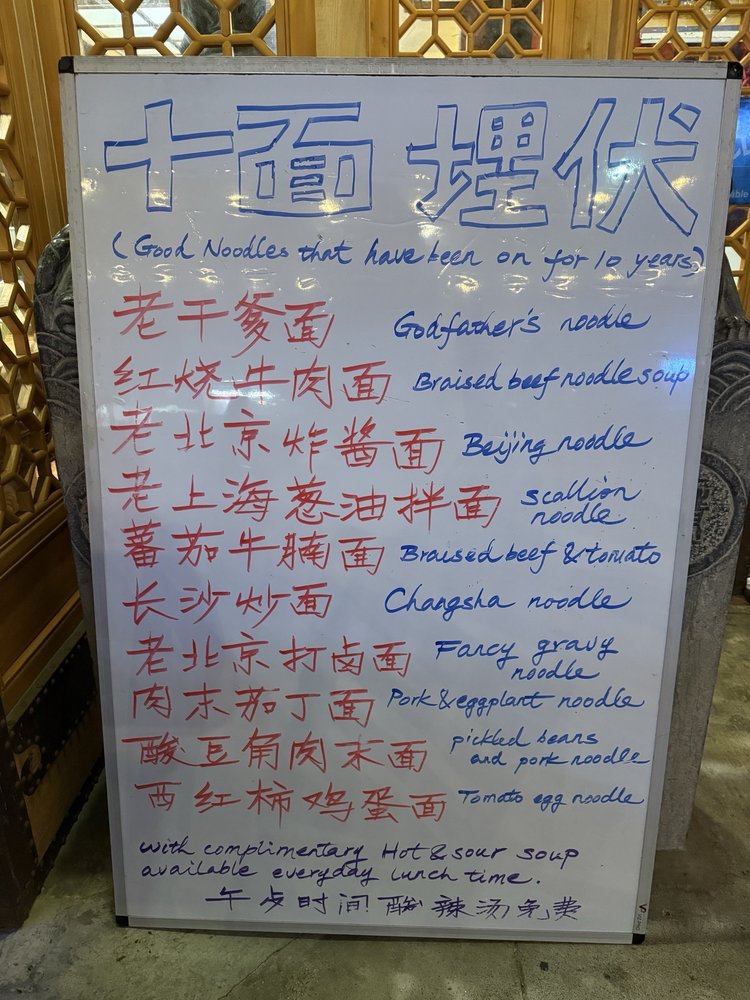 十面埋伏
(Good Noodles that have been on for 10 years)
老干爹面 Godfather's noodle
红烧牛肉面 Braised beef noodle soup
老北京炸酱面 Beijing noodle
老上海葱油拌面 scallion noodle
蕃茄牛腩面 Braised beef & tomato
长沙炒面 Changsha noodle
老北京打卤面 Fancy gravy noodle
肉末茄丁面 Pork & eggplant noodle
酸豆角肉末面 pickled beans and pork noodle
西红柿鸡蛋面 Tomato egg noodle
with complimentary Hot & sour soup
available everyday lunch time.
午歺时间酸辣汤免费